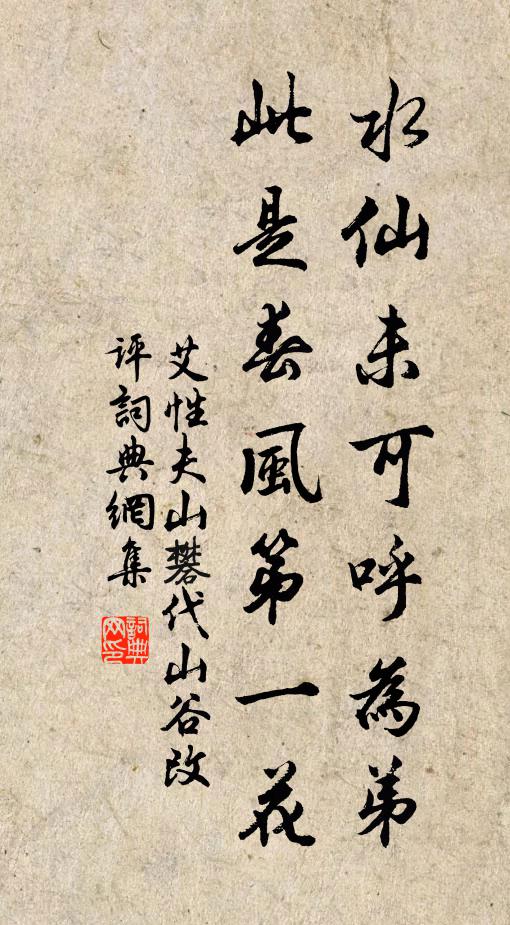 水仙未可呼為弟
此是春風第一花
艾性夫山礬代山谷改
評詞典網集
詞典網印